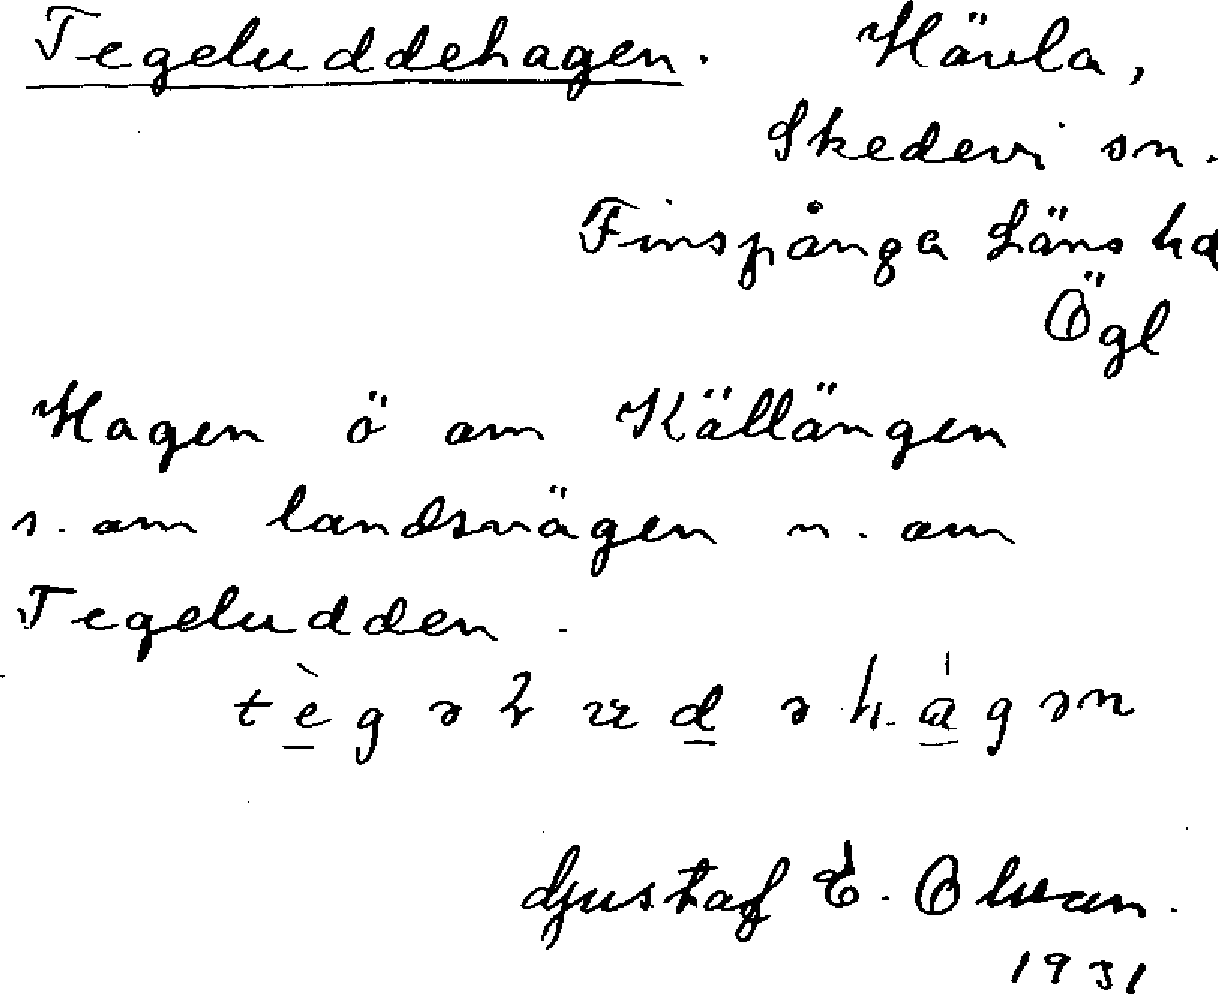 Tegeluddehagen. Hävla,
Skedevi sn.
Finspånga Läns hd
Ögl
Hagen ö om Källängen
s. om landsvägen n. om
Tegeludden.
Gustaf E. Olsson.
1931